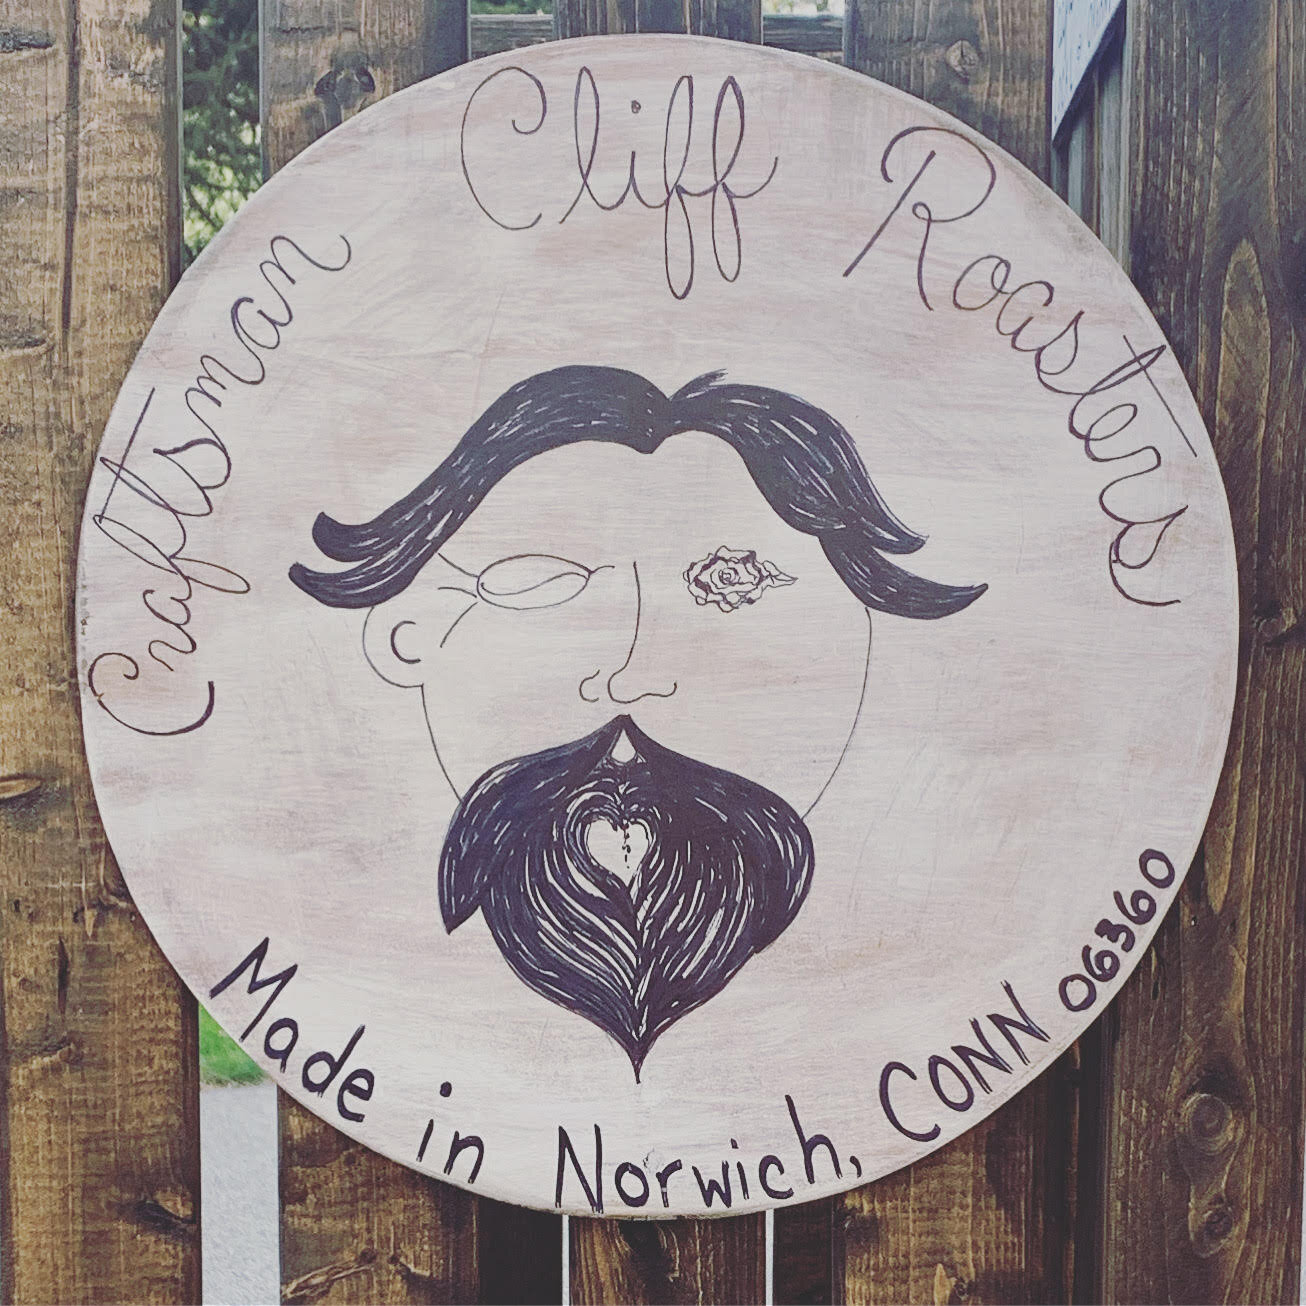 Craftsman Cliff Roasters
Made in Norwich, CONN 06360